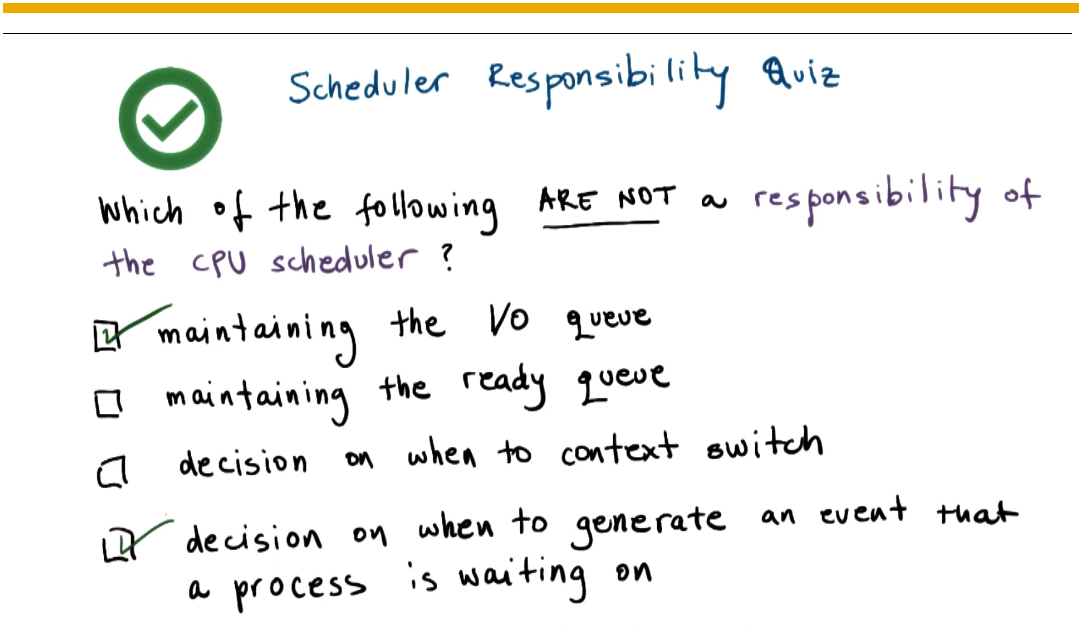 Scheduler Responsibility Quiz
Which of the following ARE NOT a responsibility of
the CPU scheduler ?
maintaining the I/O queue
maintaining the ready queue
decision on when to context switch
decision on when to generate an event that
a process is waiting on